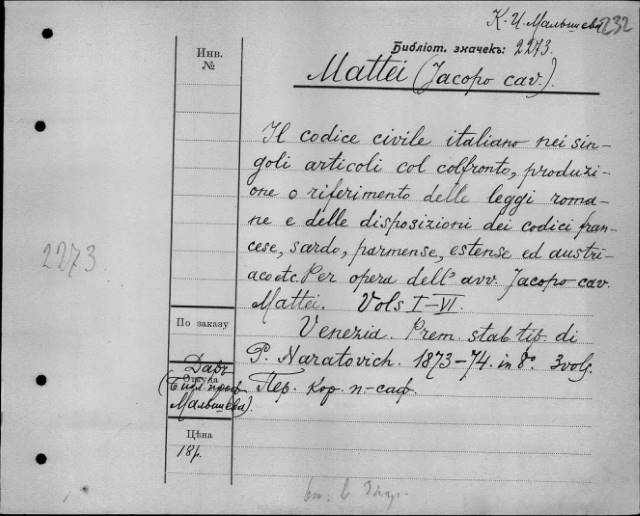 К. И. Малышева 232
Библіот. значекъ: 2273.
Инв.
№
Mattei (Jacopo cav.).
Il codice civile italiano nei sin-
goli articoli col colfronto, produzi-
one o riferimento delle leggi roma-
ne e delle disposizioni dei codici fran-
cese, sardo, parmense, estense ed austri-
aco etc. Per opera dell' avv. Jacopo cav.
Mattei. Vols I-VI.
2273
По заказу
Venezia. Prem. stab. tip. di
P. Naratovich. 1873-74. in 8°. 3 vols.
Даръ
Откуда
(Библ. проф.
Малышева).
Пер. кор. п-саф.
Цѣна
18 р.